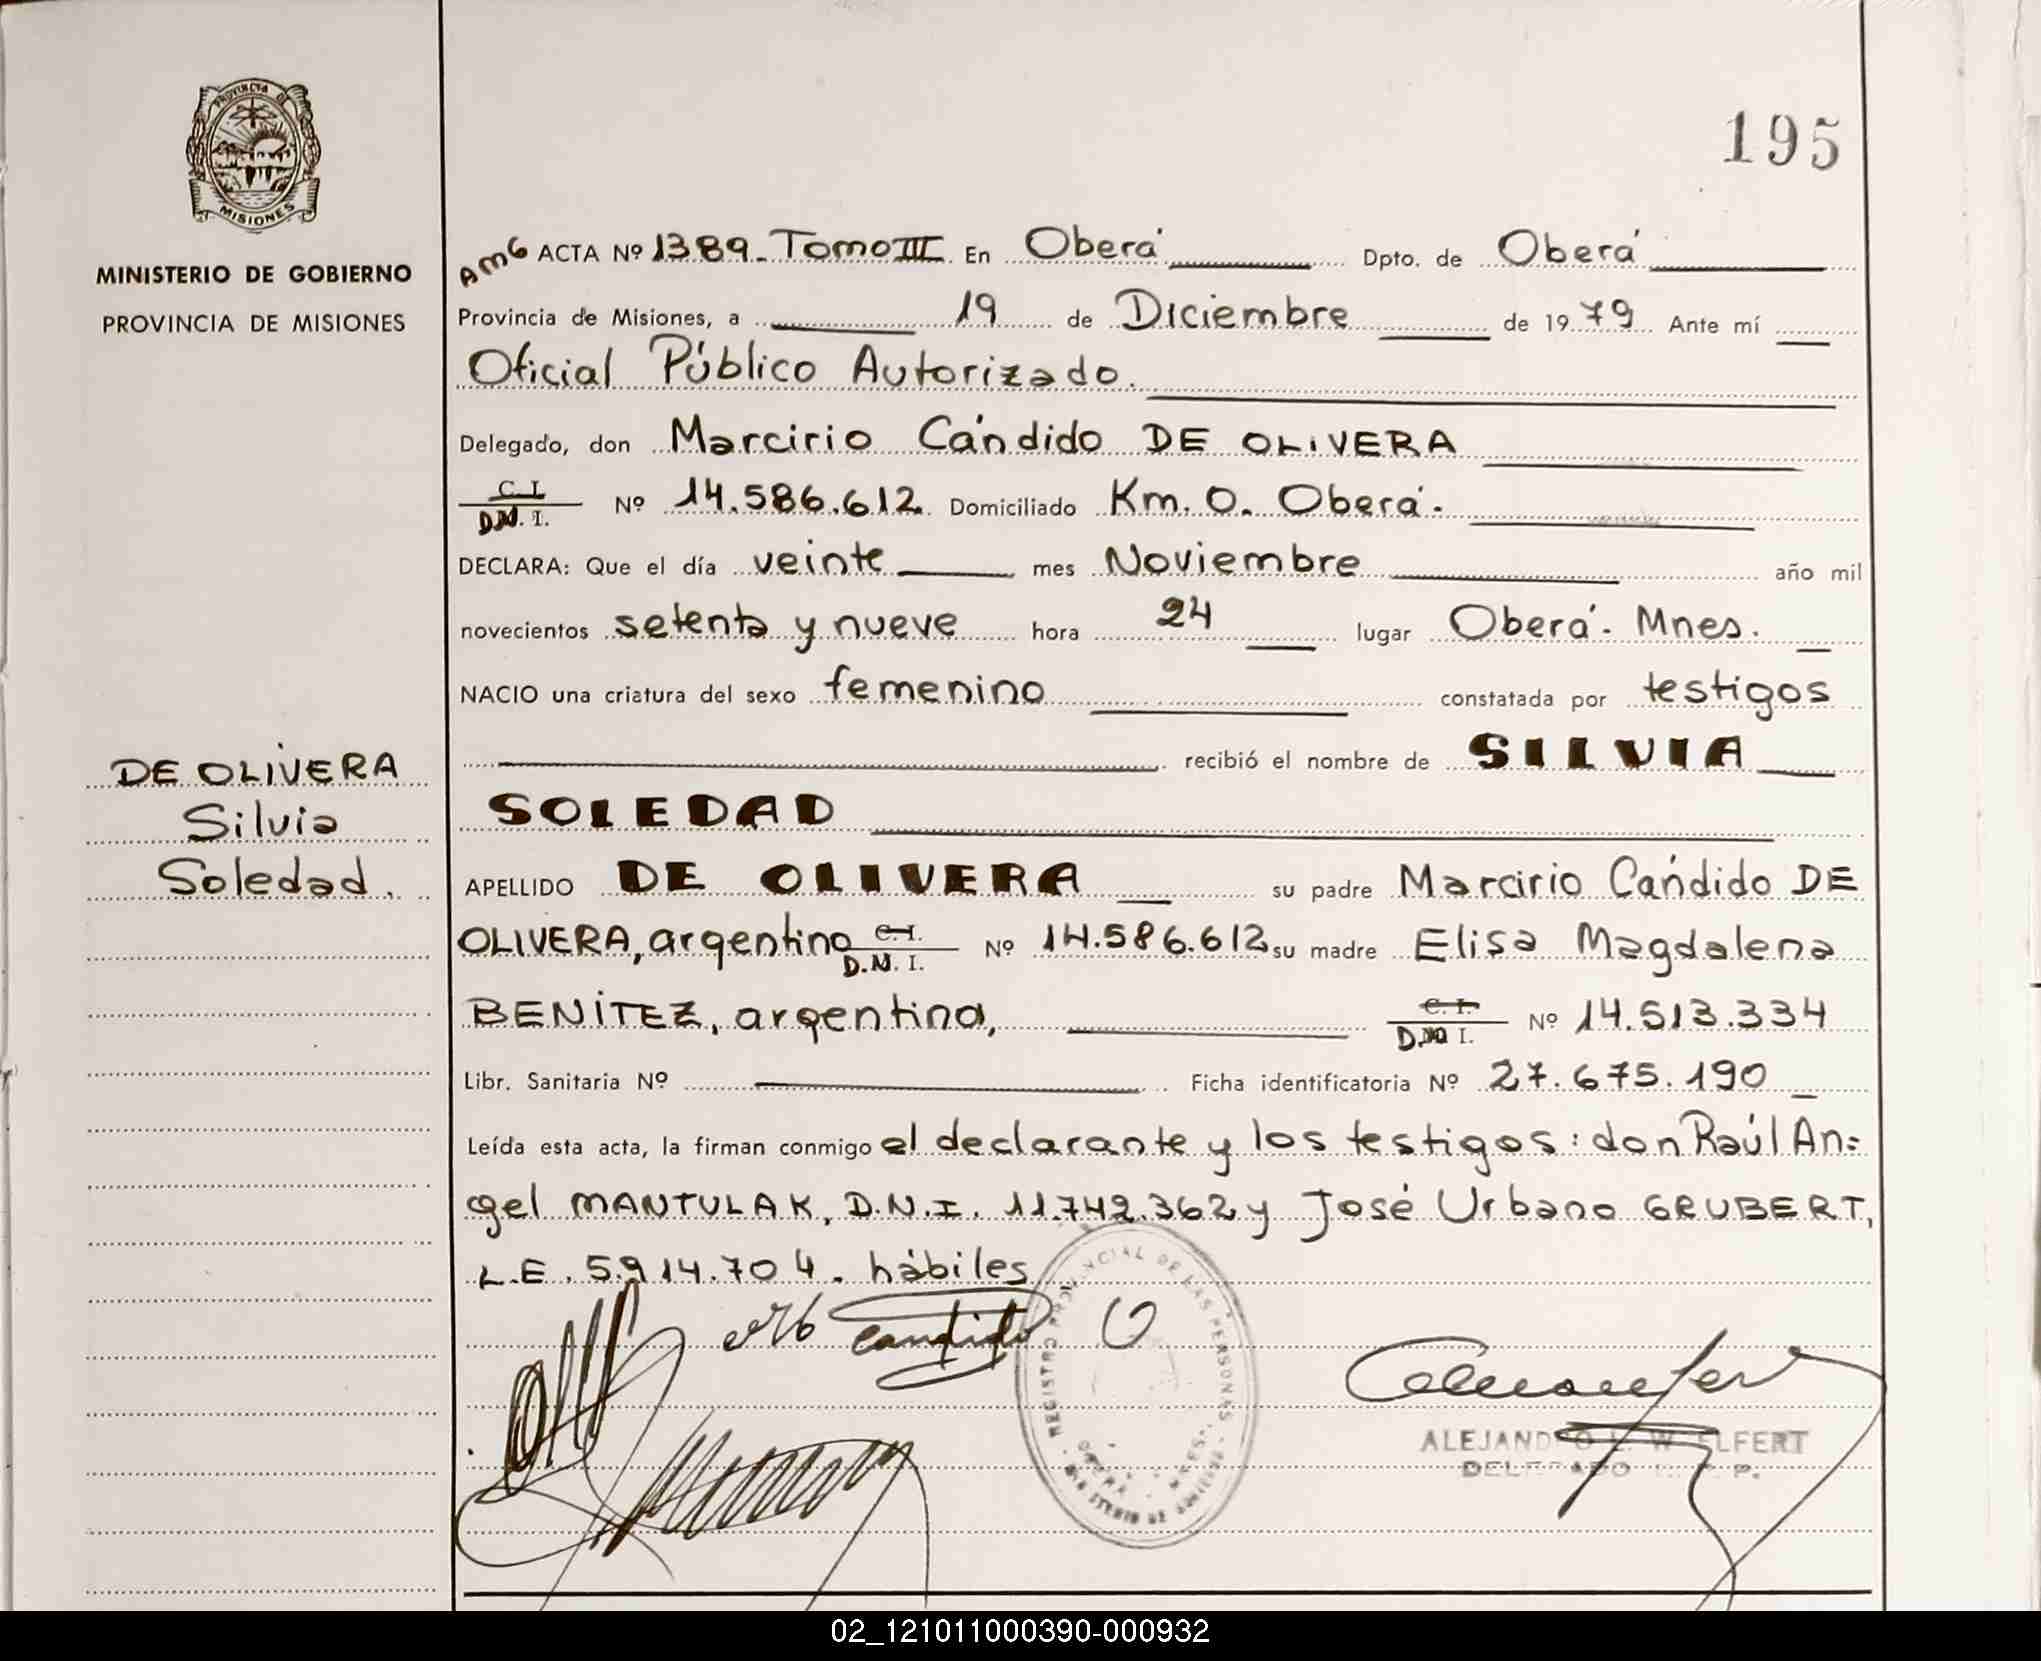 195
PROVINCIA DE
MISIONES
MINISTERIO DE GOBIERNO
PROVINCIA DE MISIONES
AMG ACTA Nº 1389_ Tomo III En Oberá Dpto. de Oberá
Provincia de Misiones, a 19 de Diciembre de 1979 Ante mí
Oficial Público Autorizado.
Delegado, don Marcirio Cándido DE OLIVERA
C. I. D.N. I. Nº 14.586.612 Domiciliado Km. O. Oberá.
DECLARA: Que el día veinte mes Noviembre año mil
novecientos setenta y nueve hora 24 lugar Oberá. Mnes.
NACIO una criatura del sexo femenino constatada por testigos
recibió el nombre de SILVIA
SOLEDAD
DE OLIVERA
Silvia
Soledad.
APELLIDO DE OLIVERA su padre Marcirio Cándido DE
OLIVERA, argentino C. I. D.N. I. Nº 14.586.612 su madre Elisa Magdalena
BENÍTEZ, argentina, C. I. D.N I. Nº 14.513.334
Libr. Sanitaria Nº Ficha identificatoria Nº 27.675.190
Leída esta acta, la firman conmigo el declarante y los testigos: don Raúl An=
gel MANTULAK, D.N.I. 11.742.362 y José Urbano GRUBERT,
L.E. 5.914.704. hábiles
candido
REGISTRO PROVINCIAL DE LAS PERSONAS
ALEJANDRO L. W. ELFERT
DELEGADO
02_121011000390-000932